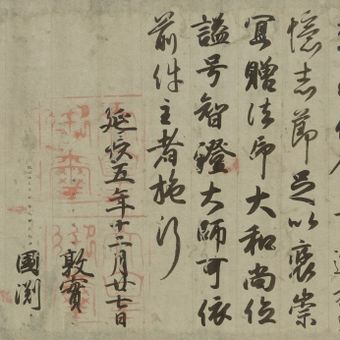 憶志節足以褒崇
冝贈法印大和尚位
謚号智證大師可依
前件主者施行
延長五年十二月廿七日
敦實
國淵